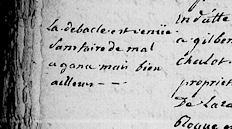 La debacle est venüe
sans faire de mal
a gana mais bien
ailleurs - -
en d'utte
a gilber
chalot
propriet
De La ca
bloque e